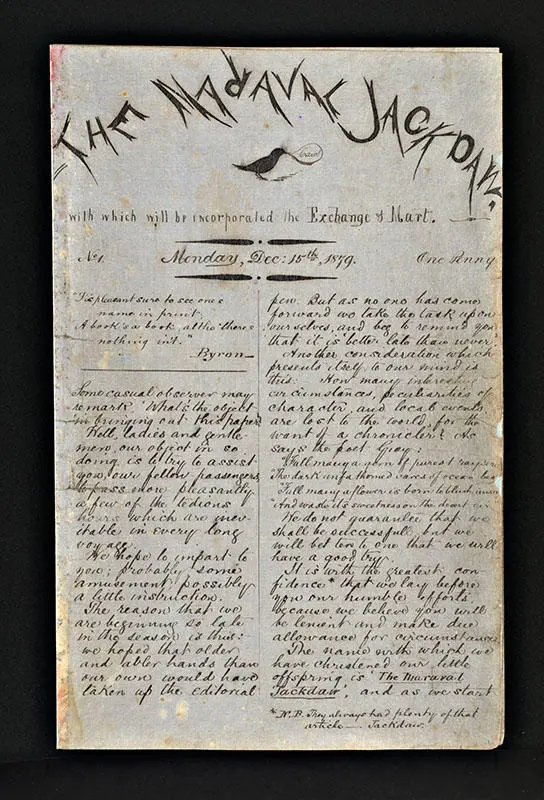 THE MARAVAL JACKDAW.
with which will be incorporated the Exchange & Mart.
No 1. Monday, Dec: 15th, 1879. One Penny
"'Tis pleasant sure to see one's
name in print;
A book's a book, altho' there's
nothing in't."
Byron—
Some casual observer may
remark "What's the object
in bringing out this paper?
Well, ladies and gentle-
men, our object in so
doing is to try to assist
you, our fellow passengers,
to pass more pleasantly
a few of the tedious
hours which are inev-
itable in every long
voyage.
We hope to impart to
you; probably some
amusement, possibly
a little instruction.
The reason that we
are beginning so late
in the season is this:
we hoped that older
and abler hands than
our own would have
taken up the editorial
pen. But as no one has come
forward we take the task upon
ourselves, and beg to remind you
that it is "better late than never".
Another consideration which
presents itself to our mind is
this: How many interesting
circumstances, peculiarities of
character, and local events
are lost to the world, for the
want of a chronicler? As
says the poet Gray:
"Full many a gem of purest ray
"The dark unfathomed caves of ocean
"Full many a flower is born to blush
"And waste its sweetness on the desert air
We do not guarantee that we
shall be successful, but we
will bet ten to one that we will
have a good try.
It is with the greatest con-
fidence* that we lay before
you our humble efforts,
because we believe you will
be lenient and make due
allowance for circumstances
The name with which we
have christened our little
offspring is "The Maraval
Jackdaw", and as we start
* N.B. They always had plenty of that
article — Jackdaw.